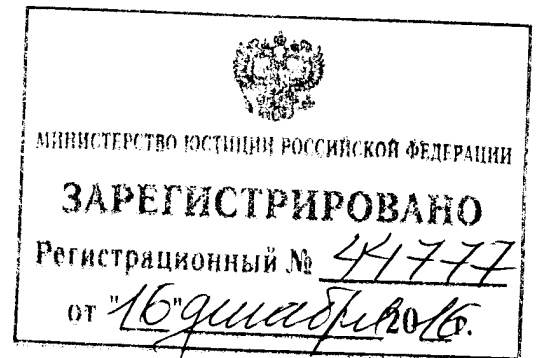 МИНИСТЕРСТВО ЮСТИЦИИ РОССИЙСКОЙ ФЕДЕРАЦИИ
ЗАРЕГИСТРИРОВАНО
Регистрационный № 44777
от "16" декабря 2016 г.